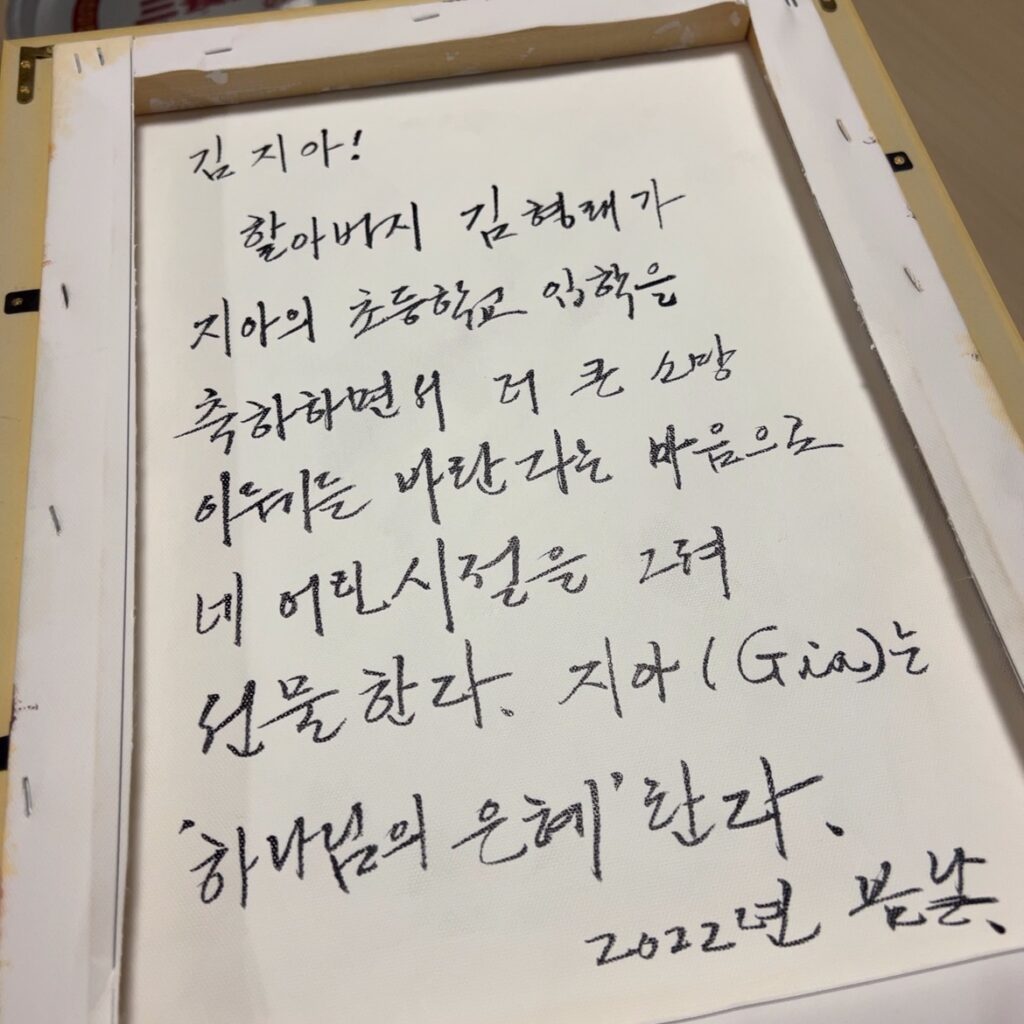 김 지아!
할아버지 김형래가
지아의 초등학교 입학을
축하하면서 더 큰 소망
이루기를 바란다는 마음으로
네 어린시절을 그려
선물한다. 지아(Gia)는
'하나님의 은혜'란다.
2022년 봄날.